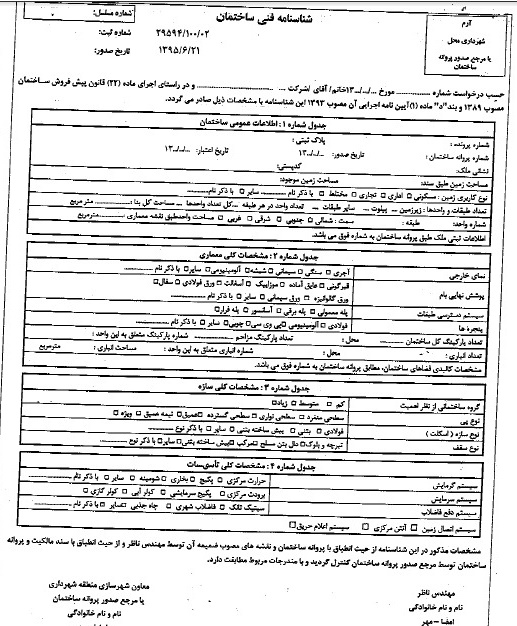 شناسنامه فنی ساختمان
آرم
شهرداری محل
یا مرجع صدور پروانه
ساختمان
شماره مسلسل:
شماره ثبت: ۲۹۵۹۴/۱۰۰/۰۲
تاریخ صدور: ۱۳۹۵/۶/۲۱
حسب درخواست شماره ............ مورخ ../../..۱۳ خانم/ آقای /شرکت ............ و در راستای اجرای ماده (۲۲) قانون پیش فروش ساختمان
مصوب ۱۳۸۹ و بند"د" ماده (۱) آیین نامه اجرایی آن مصوب ۱۳۹۳ این شناسنامه با مشخصات ذیل صادر می گردد.
جدول شماره ۱: اطلاعات عمومی ساختمان
شماره پرونده: پلاک ثبتی:
شماره پروانه ساختمان: تاریخ صدور: ../../..۱۳ تاریخ اعتبار: ../../..۱۳
نشانی ملک: کدپستی:
مساحت زمین طبق سند: مساحت زمین موجود:
نوع کاربری زمین: مسکونی □ اداری □ تجاری □ مختلط □ با ذکر نام ........ سایر □ با ذکر نام ........
تعداد طبقات و واحدها: زیرزمین ... پیلوت ... سایر طبقات ... تعداد واحد در هر طبقه ... کل تعداد واحدها ... مساحت کل بنا ........ متر مربع
شماره واحد: طبقه: سمت: شمالی □ جنوبی □ شرقی □ غربی □ مساحت واحدطبق نقشه معماری ........ مترمربع
اطلاعات ثبتی ملک طبق پروانه ساختمان به شماره فوق می باشد.
جدول شماره ۲: مشخصات کلی معماری
نمای خارجی آجری □ سنگی □ سیمانی □ شیشه □ آلومینیومی □ سایر □ با ذکر نام ........
پوشش نهایی بام قیرگونی □ عایق آماده □ موزاییک □ آسفالت □ ورق فولادی □ سفال □
ورق گالوانیزه □ ورق سیمانی □ سایر □ با ذکر نام ........
سیستم دسترسی طبقات پله معمولی □ پله برقی □ آسانسور □ پله فرار □
پنجره ها فولادی □ آلومینیومی □ پی وی سی □ چوبی □ سایر □ با ذکر نام ........
تعداد پارکینگ کل ساختمان ........ محل: تعداد پارکینگ مزاحم ........ شماره پارکینگ متعلق به این واحد:
تعداد انباری: محل: شماره انباری متعلق به این واحد: مساحت انباری: مترمربع
مشخصات کالبدی فضاهای ساختمان، مطابق پروانه ساختمان به شماره فوق می باشد.
جدول شماره ۳: مشخصات کلی سازه
گروه ساختمانی از نظر اهمیت کم □ متوسط □ زیاد □
نوع پی سطحی منفرد □ سطحی نواری □ سطحی گسترده □ عمیق □ نیمه عمیق □ ویژه □
نوع سازه ( اسکلت ) فولادی □ بتنی □ پیش ساخته بتنی □ سایر □ با ذکر نوع ........
نوع سقف تیرچه و بلوک □ دال بتن مسلح □ مرکب □ پیش ساخته بتنی □ سایر □ با ذکر نوع
جدول شماره ۴: مشخصات کلی تأسیسات
سیستم گرمایش حرارت مرکزی □ پکیج □ بخاری □ شومینه □ سایر □ با ذکر نام ........
سیستم سرمایش برودت مرکزی □ پکیج سرمایشی □ کولر آبی □ کولر گازی □
سیستم دفع فاضلاب سپتیک تانک □ فاضلاب شهری □ چاه جذبی □ سایر □ با ذکر نام ........
سیستم اتصال زمین □ آنتن مرکزی □ سیستم اعلام حریق □
مشخصات مذکور در این شناسنامه از حیث انطباق با پروانه ساختمان و نقشه های مصوب ضمیمه آن توسط مهندس ناظر و از حیث انطباق با سند مالکیت و پروانه
ساختمان توسط مرجع صدور پروانه ساختمان کنترل گردید و با مندرجات مربوط مطابقت دارد.
مهندس ناظر
نام و نام خانوادگی
امضا - مهر
معاون شهرسازی منطقه شهرداری
یا مرجع صدور پروانه ساختمان
نام و نام خانوادگی